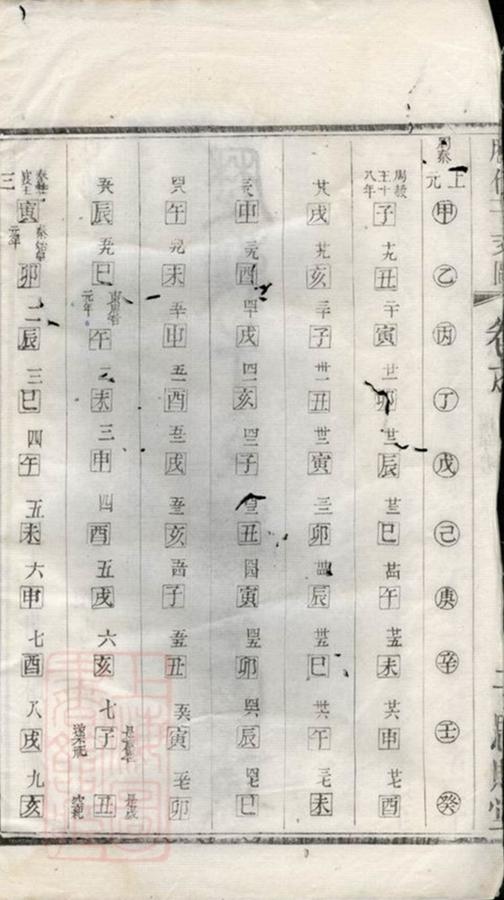 上元
甲 乙 丙 丁 戊 己 庚 辛 壬 癸
周赧王十八年 子 十九 丑 二十 寅 廿一 卯 廿二 辰 廿三 巳 廿四 午 廿五 未 廿六 申 廿七 酉
廿八 戌 廿九 亥 三十 子 丗一 丑 丗二 寅 丗三 卯 丗四 辰 丗五 巳 丗六 午 三七 未
三八 申 三九 酉 四十 戌 四一 亥 四二 子 四三 丑 四四 寅 四五 卯 四六 辰 四七 巳
四八 午 四九 未 五十 申 五一 酉 五二 戌 五三 亥 五四 子 五五 丑 五六 寅 五七 卯
五八 辰 五九 巳 東周君元年 午 二 未 三 申 四 酉 五 戌 六 亥 七 子 丑
三 寅 元年 卯 二 辰 三 巳 四 午 五 未 六 申 七 酉 八 戌 九 亥